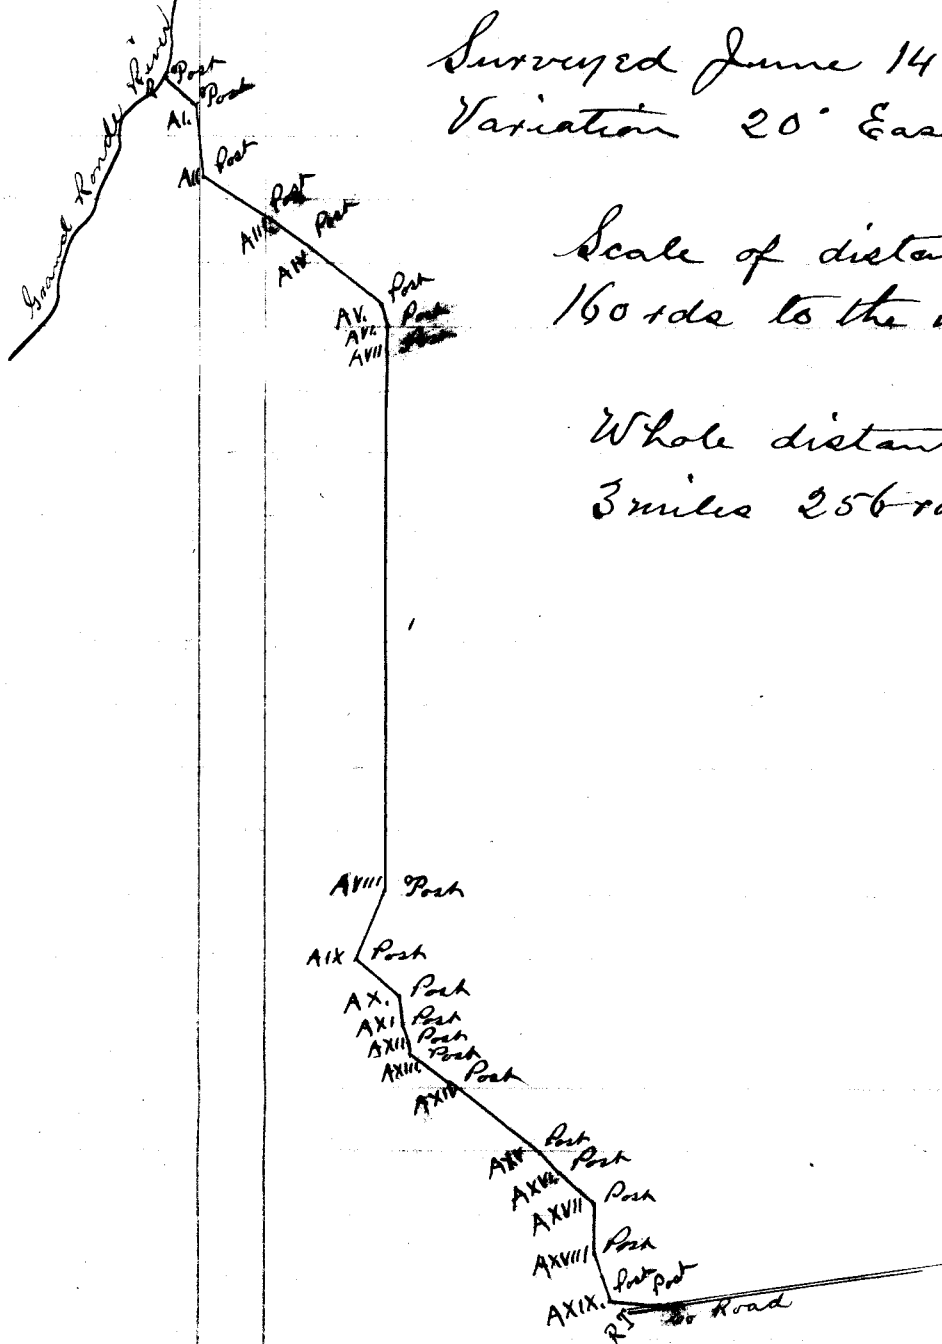 Surveyed June 14
Variation 20° Eas
Scale of distan
160 rds to the
Whole distan
3 miles 256 r
Grand Ronde River
Post
A I. Post
A II Post
A III Post
A IV Post
A V. Post
A VI. Post
A VII
A VIII Post
A IX Post
A X. Post
A XI Post
A XII Post
A XIII. Post
A XIV Post
A XV Post
A XVI. Post
A XVII Post
A XVIII Post
A XIX. Post Post
Co Road